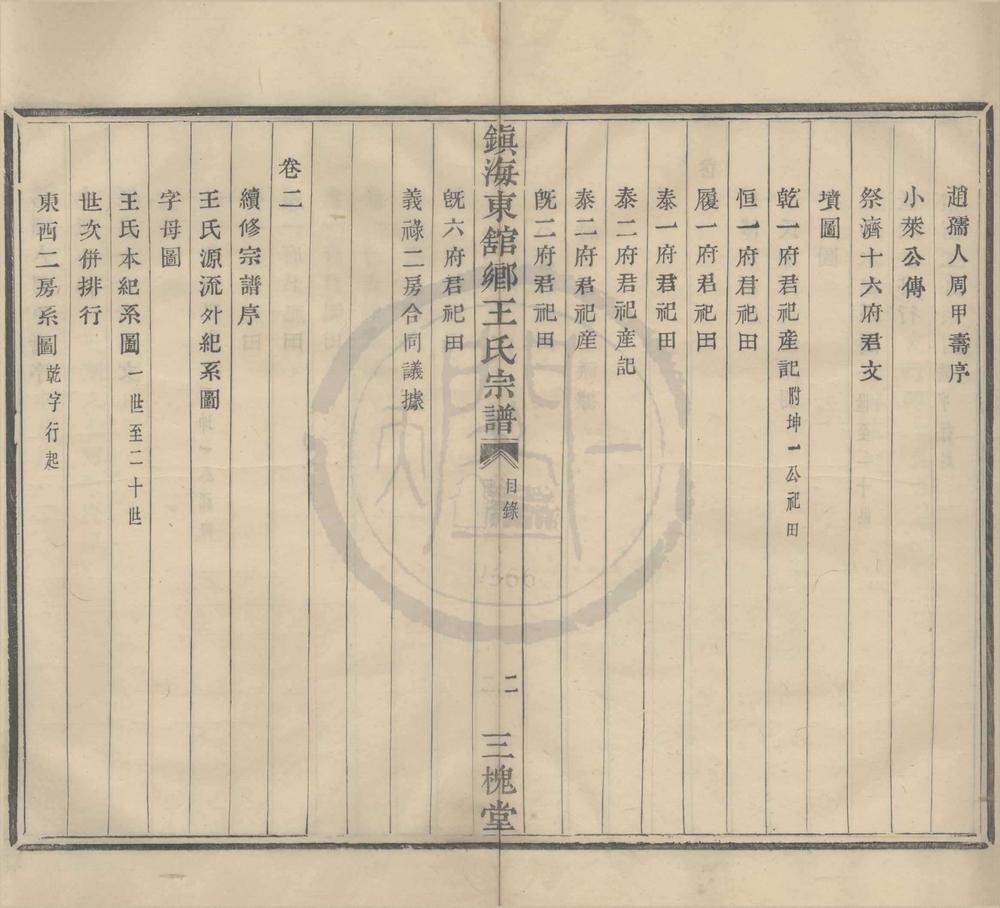 趙孺人周甲壽序
小萊公傳
祭濟十六府君文
墳圖
乾一府君祀產記附坤一公祀田
恒一府君祀田
履一府君祀田
泰一府君祀田
泰二府君祀產記
泰二府君祀產
既二府君祀田
鎮海東舘鄉王氏宗譜
目錄
二
三槐堂
既六府君祀田
義祿二房合同議據
卷二
續修宗譜序
王氏源流外紀系圖
字母圖
王氏本紀系圖一世至二十世
世次併排行
東西二房系圖乾字行起
1566